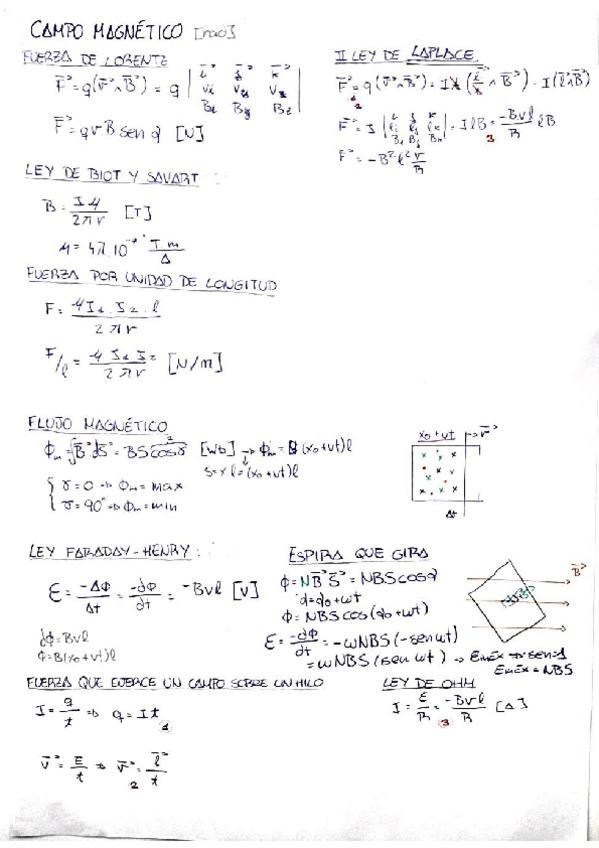 CAMPO MAGNÉTICO
FUERZA DE LORENTZ
F⃗ = q(v⃗ ∧ B⃗) = q | i⃗ j⃗ k⃗
Bx By Bz |
F⃗ = qvB sen α [N]
LEY DE BIOT Y SAVART :
B = Iμ / 2πr [T]
μ = 4π·10⁻⁷ T·m / A
FUERZA POR UNIDAD DE LONGITUD
F = μI₁·I₂·l / 2πr
F/l = μ I₁ I₂ / 2πr [N/m]
II LEY DE LAPLACE
F⃗ = q(v⃗ ∧ B⃗) = I t (l⃗/t ∧ B⃗) = I(l⃗ ∧ B⃗)
1 2
F⃗ = I | i j k
lx ly lk
| = I l B = -Bvl / R lB
3
F⃗ = -B² l² v/R
FLUJO MAGNÉTICO
ϕm = ∫B⃗ dS⃗ = BS cos γ [Wb] → ϕm = B(x₀+vt)l
S = x l = (x₀+vt)l
γ = 0 → ϕm = max
γ = 90° → ϕm = min
x₀ + vt → v⃗
Δt
LEY FARADAY-HENRY :
ε = -Δϕ / Δt = -dϕ / dt = -Bvl [V]
dϕ = Bvl
ϕ = B(x₀+vt)l
ESPIRA QUE GIRA
ϕ = N B⃗ S⃗ = NBS cos α
α = α₀ + ωt
ϕ = NBS cos(α₀ + ωt)
ε = -dϕ / dt = -ωNBS(-sen ωt)
= ωNBS (sen ωt) → εmáx → sen=1
εmáx = NBS
B⃗
FUERZA QUE EJERCE UN CAMPO SOBRE UN HILO
I = q/t ⇒ q = I t
1
v⃗ = E/t ⇒ v⃗ = l⃗/t
2
LEY DE OHM
I = ε/R = -Bvl / R [A]
3